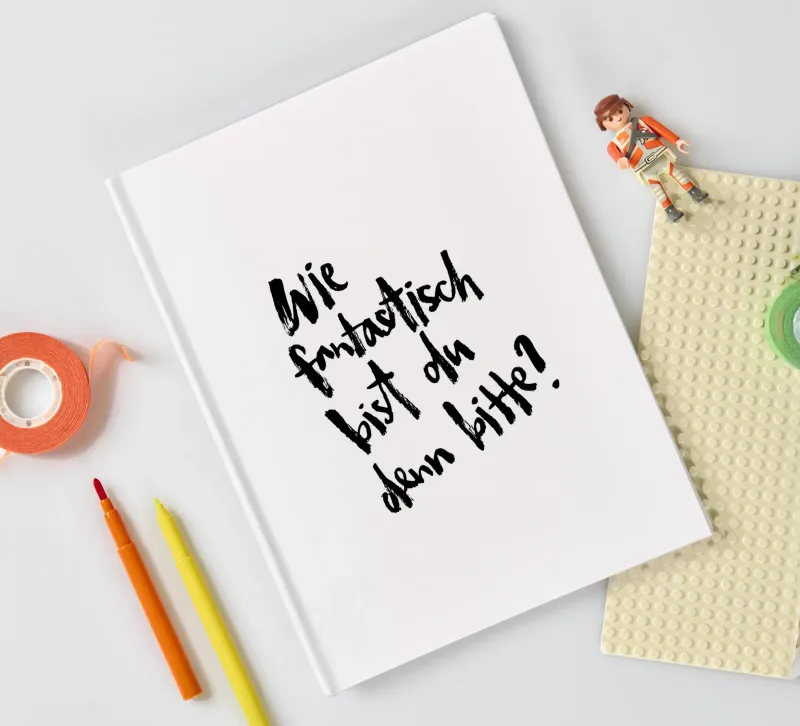 Wie
fantastisch
bist du
denn bitte?